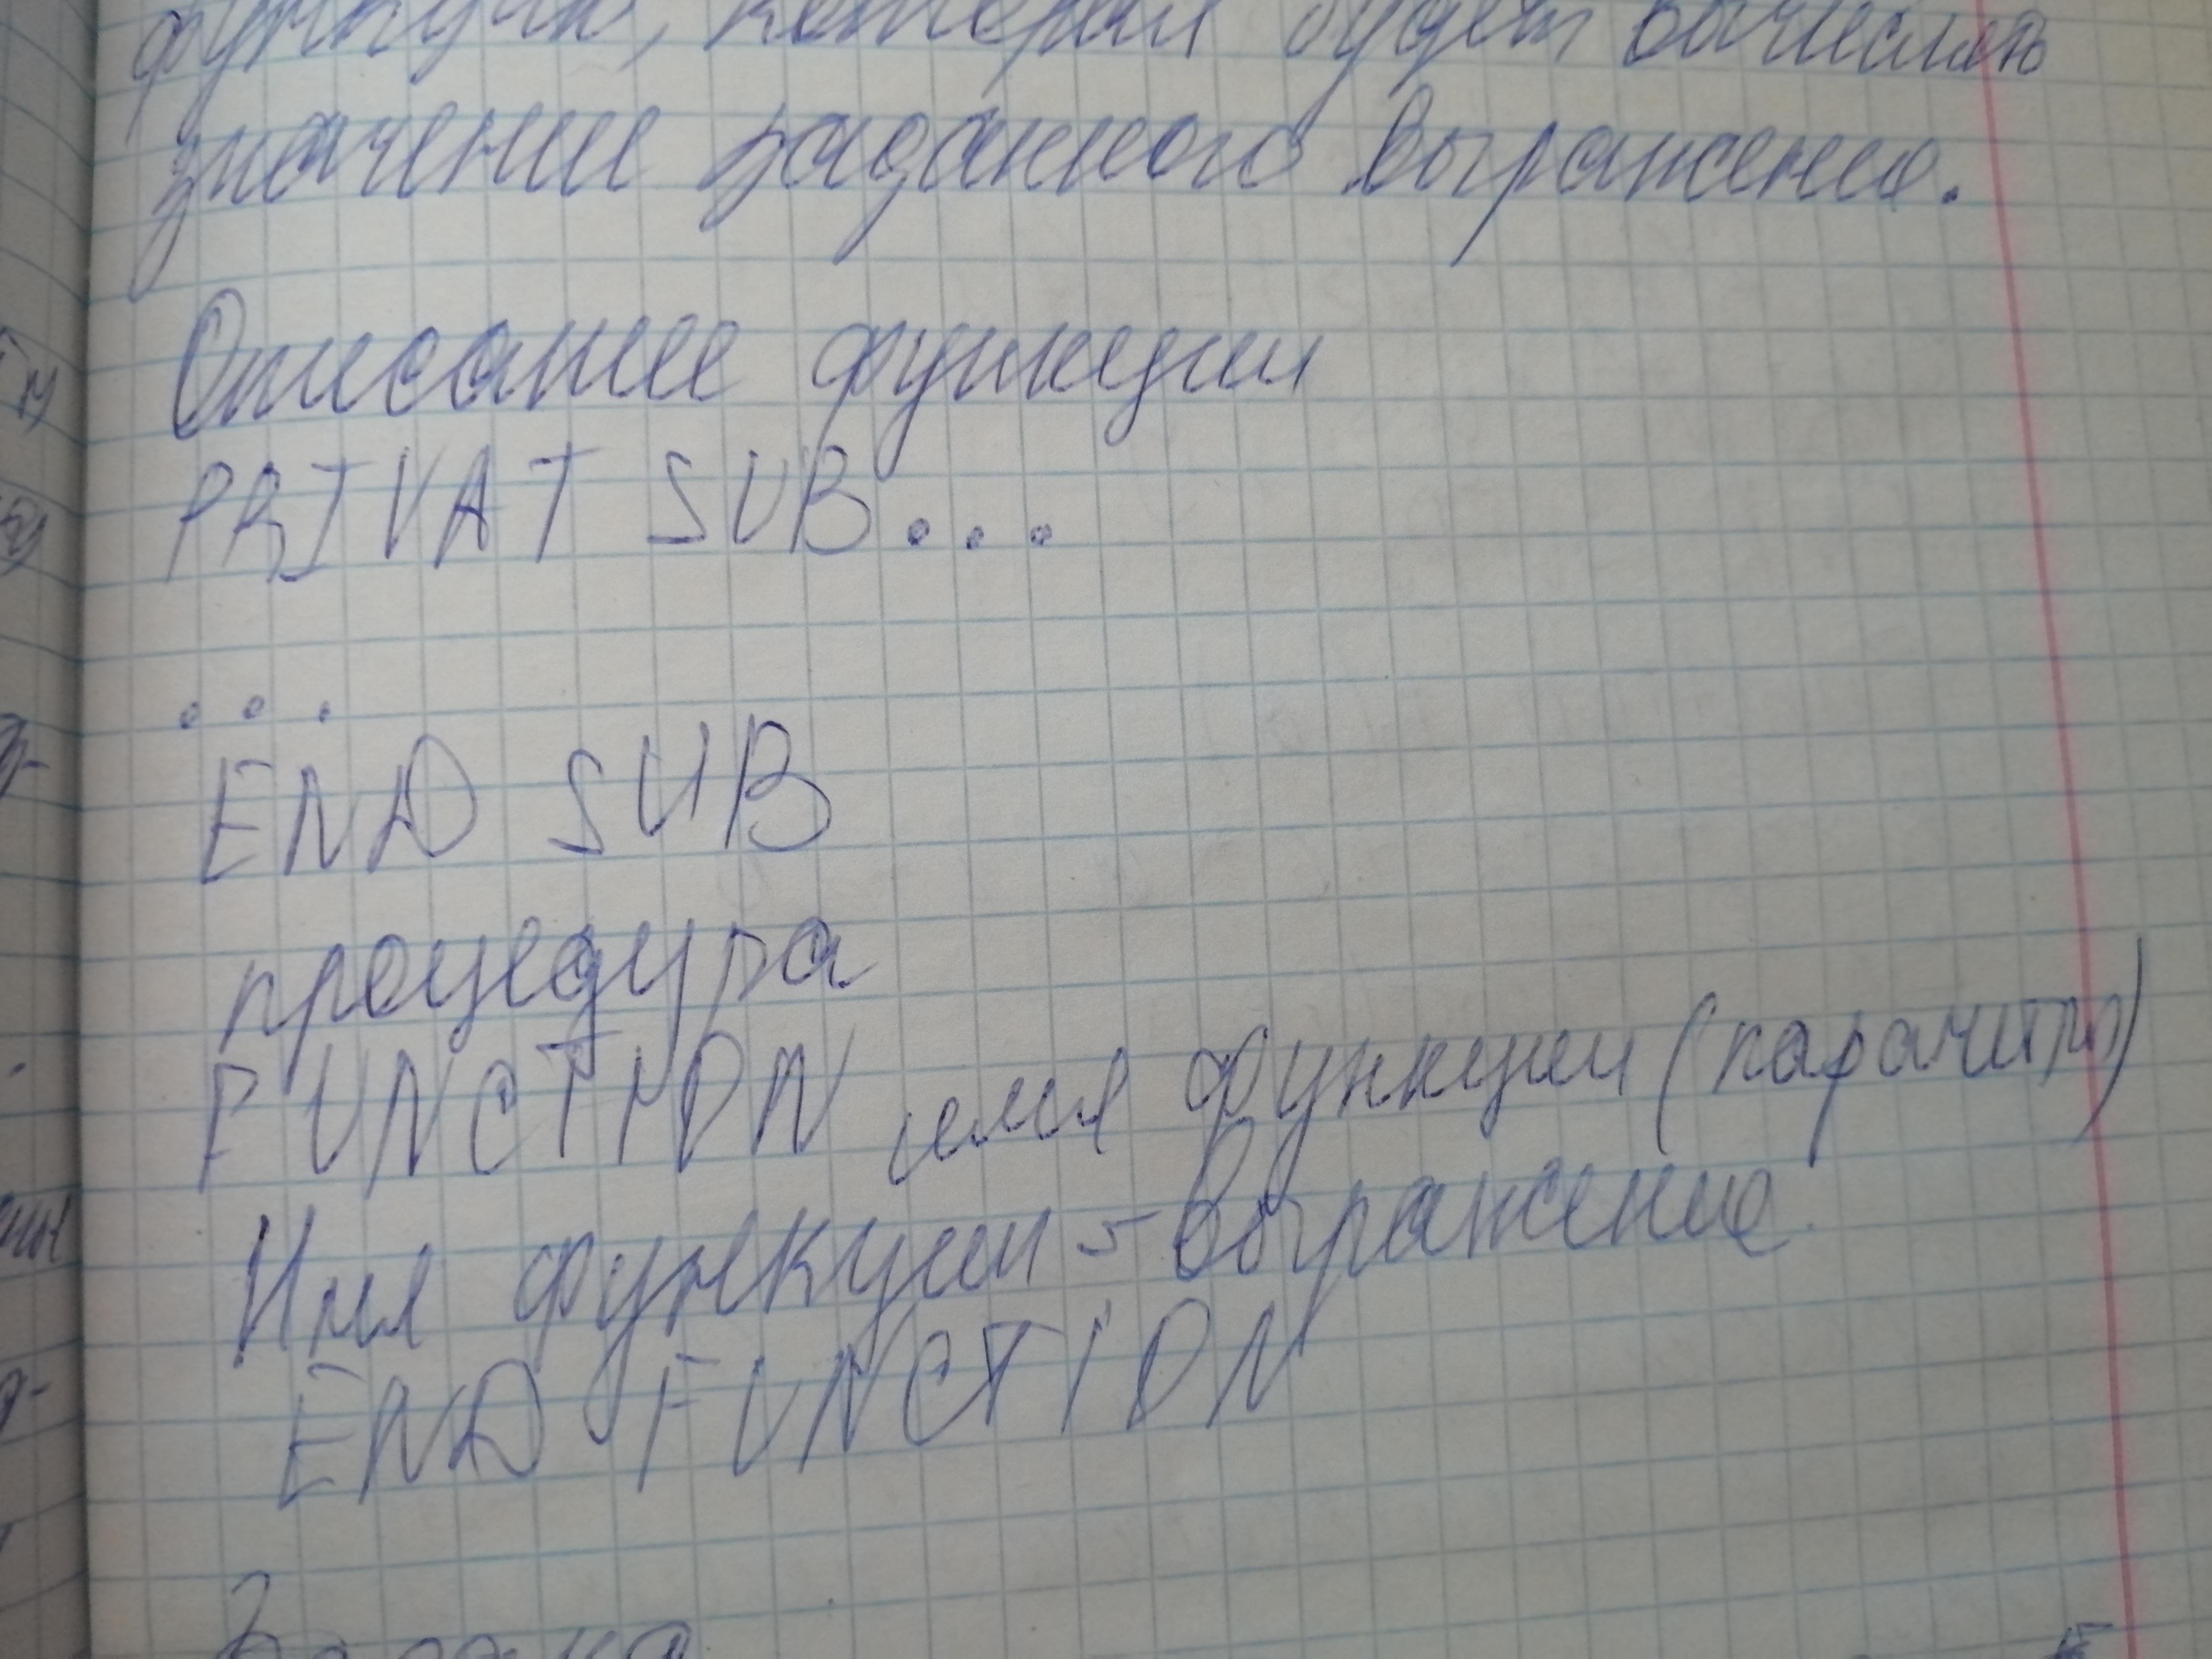 функцию, которая будет вычислять
значение заданного выражения.
Описание функции
PRIVAT SUB...
...
END SUB
процедура
FUNCTION имя функции (параметры)
Имя функции = выражение
END FUNCTION
Задача